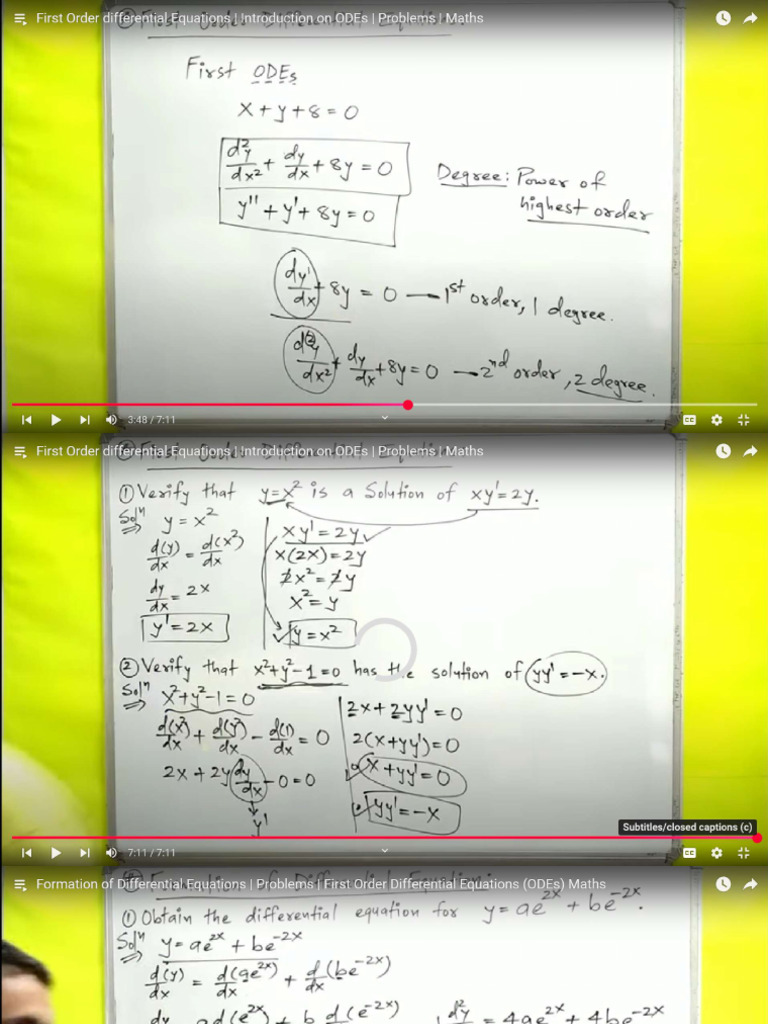 First Order differential Equations | Introduction on ODEs | Problems | Maths
First ODEs
x+y+8=0
d²y/dx² + dy/dx + 8y = 0
y''+y'+8y=0
Degree: Power of
highest order
dy¹/dx + 8y = 0 — 1st order, 1 degree.
d²y/dx² + dy/dx + 8y = 0 — 2nd order, 2 degree.
3:48 / 7:11
CC
First Order differential Equations | Introduction on ODEs | Problems | Maths
① Verify that y=x² is a Solution of xy'=2y.
Solⁿ y=x²
d(y)/dx = d(x²)/dx
dy/dx = 2x
y'=2x
xy'=2y
x(2x)=2y
2x²=2y
x²=y
y=x²
② Verify that x²+y²-1=0 has the solution of yy'=-x.
Solⁿ x²+y²-1=0
d(x²)/dx + d(y²)/dx - d(1)/dx = 0
2x+2y dy/dx - 0=0
y'
2x+2yy'=0
2(x+yy')=0
x+yy'=0
yy'=-x
Subtitles/closed captions (c)
7:11 / 7:11
CC
Formation of Differential Equations | Problems | First Order Differential Equations (ODEs) Maths
① Obtain the differential equation for y=ae^2x + be^-2x.
Solⁿ y=ae^2x + be^-2x
d(y)/dx = d(ae^2x)/dx + d/dx(be^-2x)